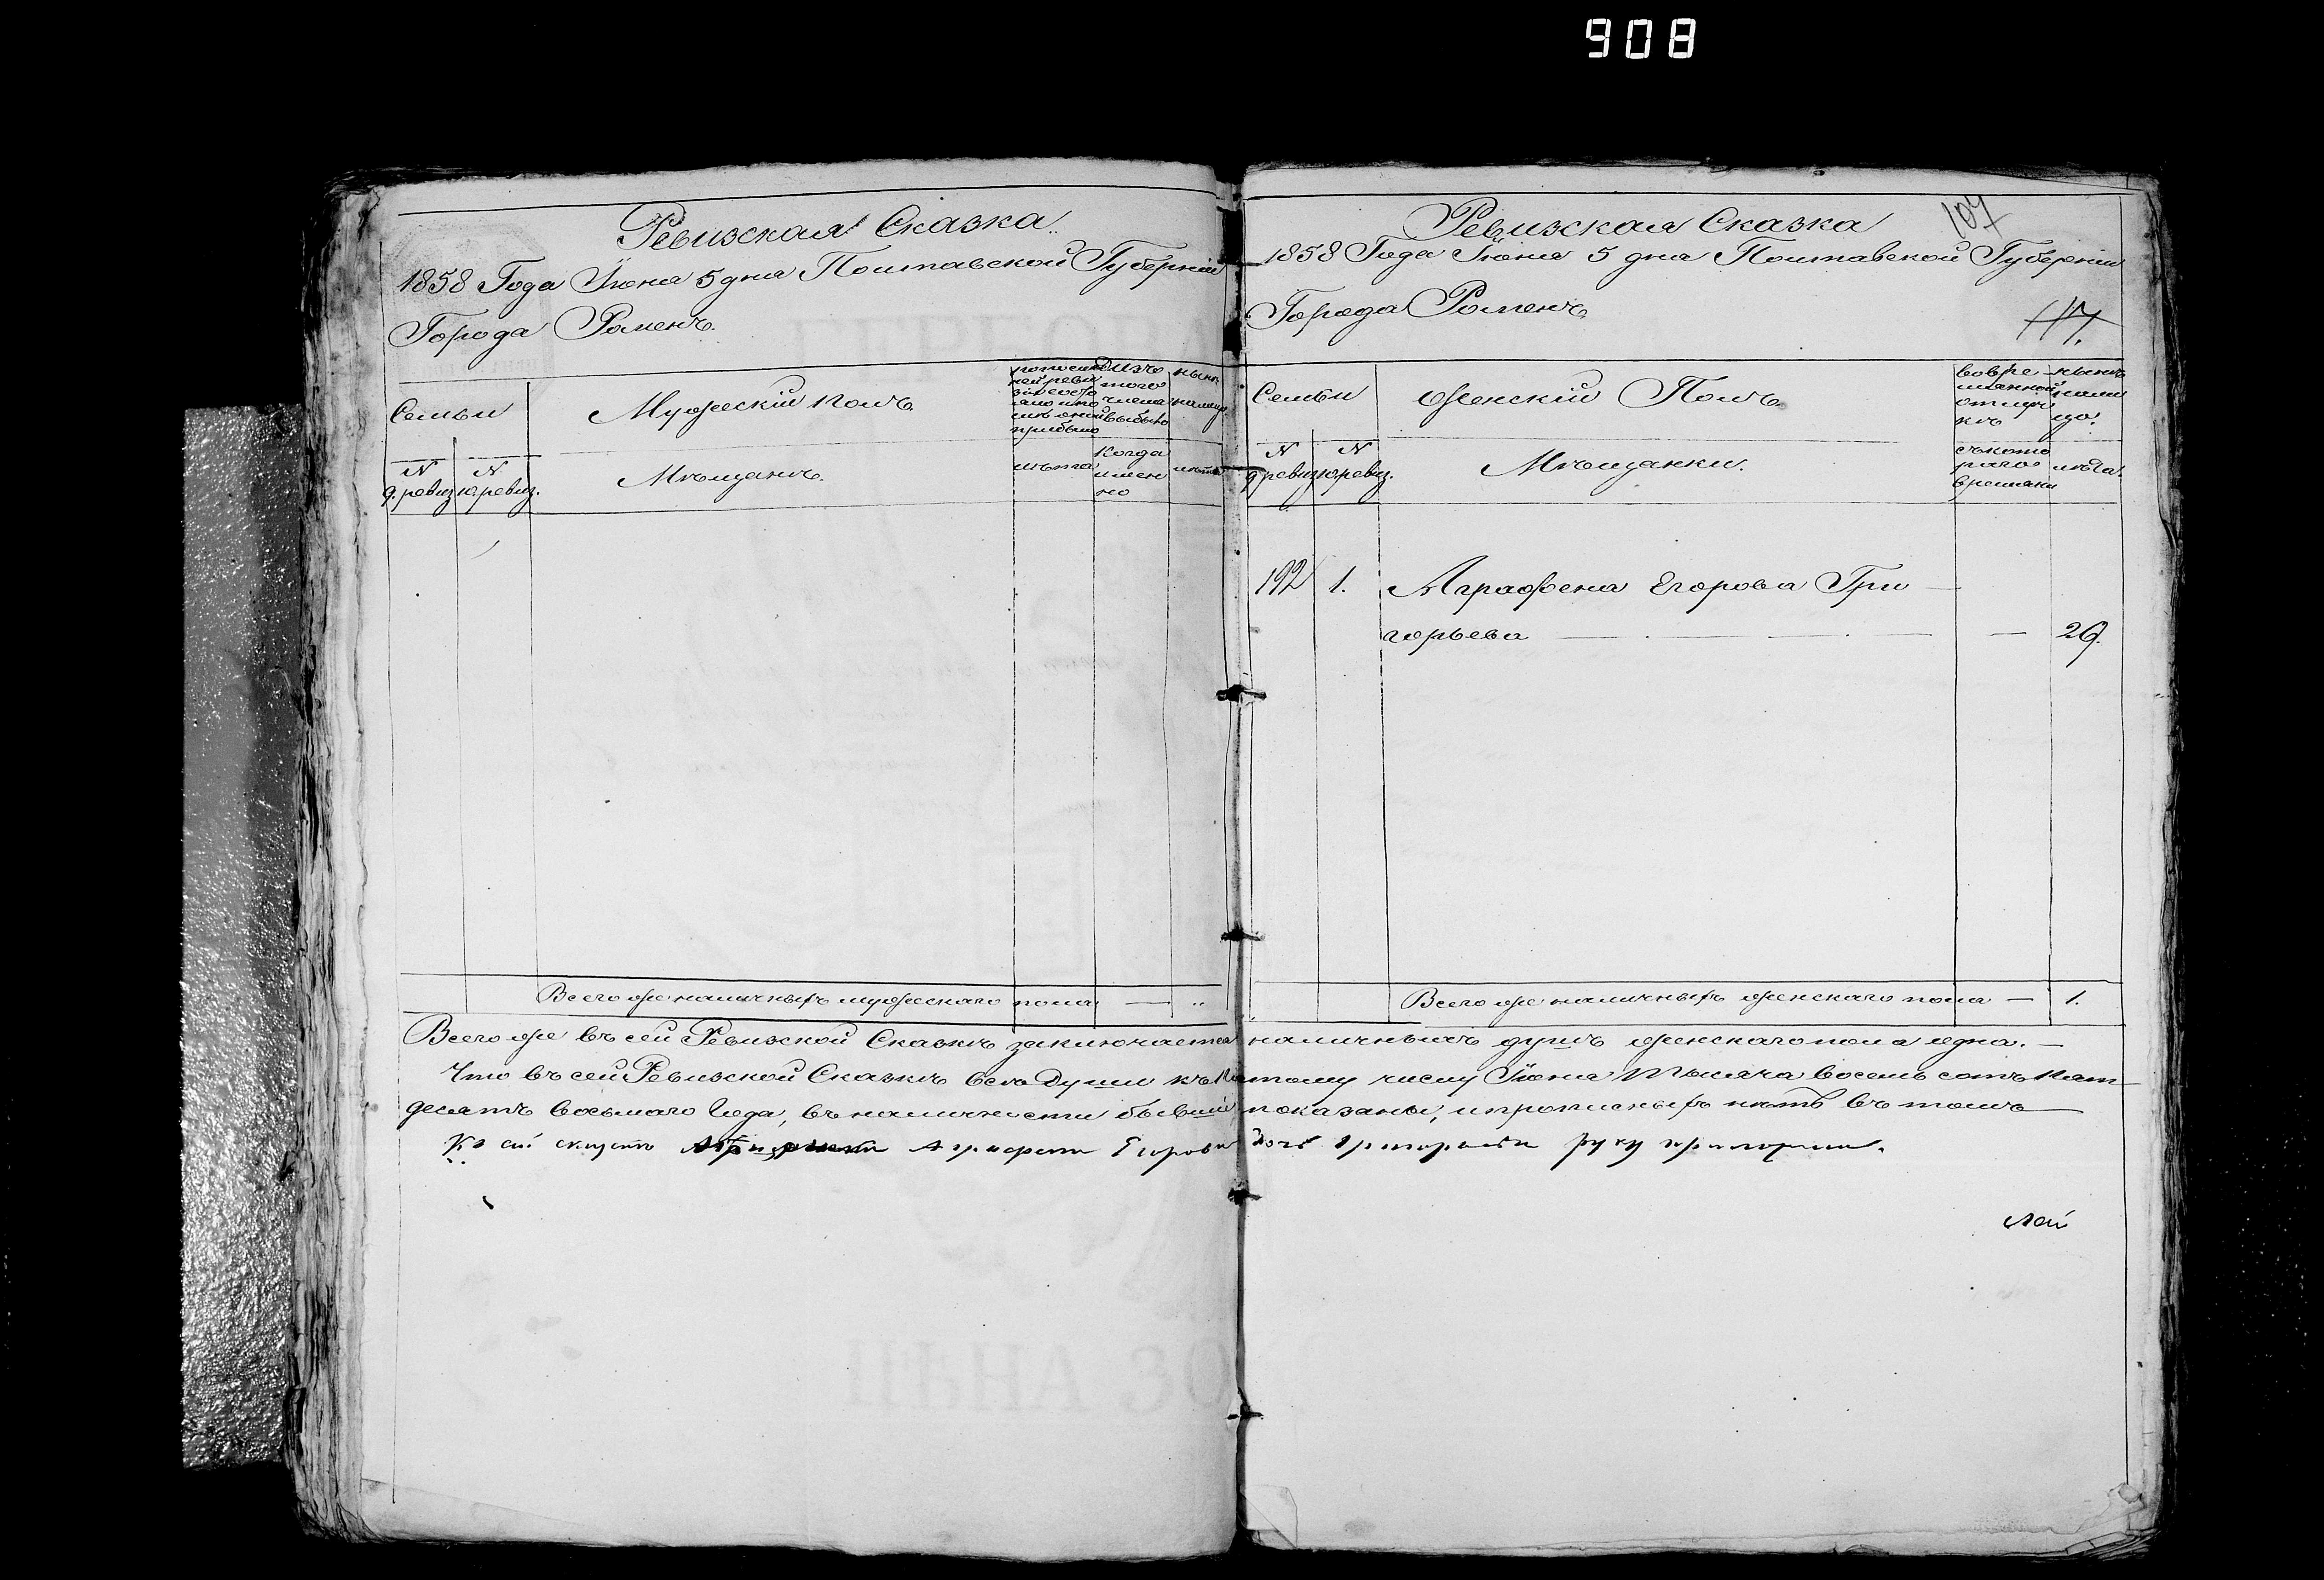 908
Ревизская Сказка
1858 Года Июня 5 дня Полтавской Губерніи
Города Роменъ.
Семьи
Мужескій полъ
По послѣдней ревизіи состояло и послѣ оной прибыло
Изъ того числа выбыло
Нынѣ налицо
N 9. ревиз
N 10. ревиз.
Мѣщанъ.
лѣта
Когда именно
лѣта
Всего же наличныхъ мужескаго пола — „
107
Ревизская Сказка
1858 Года Июня 5 дня Полтавской Губерніи
Города Роменъ
117.
Семьи
Женскій Полъ
Во временной отлучкѣ
Нынѣ налицо.
N 9 ревиз
N 10 ревиз.
Мѣщанки.
Съ котораго времени
лѣта.
192 1. Аграфена Егорова Гри—
горьева — — — 29.
Всего же наличныхъ женскаго пола — 1.
Всего же въ сей Ревизской Сказкѣ заключается наличныхъ душъ женскаго пола одна. —
Что въ сей Ревизской Сказкѣ всѣ Души къ Пятому числу Июня Тысяча восемь сотъ Пять—
десятъ восьмаго Года, въ наличности бывшія показаны, и прописныхъ нѣтъ въ томъ
Къ сей сказкѣ Аграфена Егорова дочь Григорьева руку приложила.